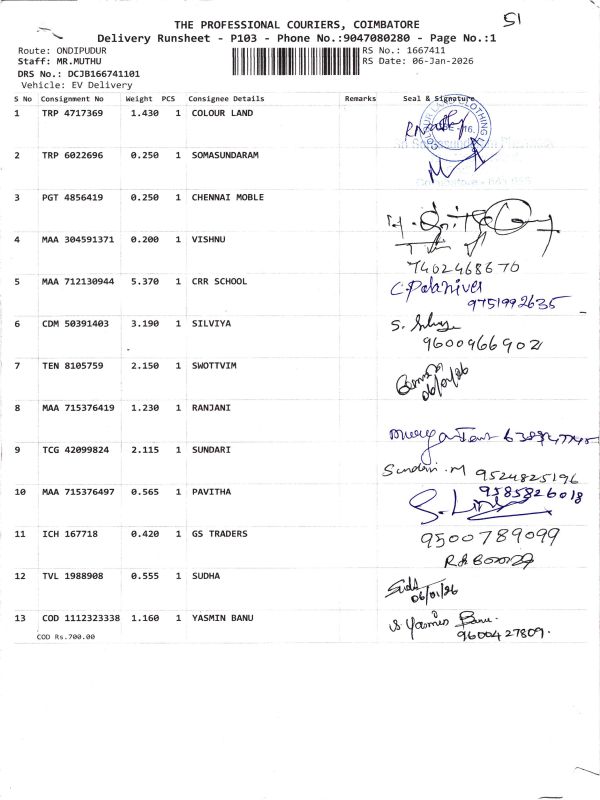 51
THE PROFESSIONAL COURIERS, COIMBATORE
Delivery Runsheet - P103 - Phone No.:9047080280 - Page No.:1
Route: ONDIPUDUR
RS No.: 1667411
Staff: MR.MUTHU
RS Date: 06-Jan-2026
DRS No.: DCJB166741101
Vehicle: EV Delivery
S No Consignment No Weight PCS Consignee Details Remarks Seal & Signature
1 TRP 4717369 1.430 1 COLOUR LAND
2 TRP 6022696 0.250 1 SOMASUNDARAM
3 PGT 4856419 0.250 1 CHENNAI MOBLE
4 MAA 304591371 0.200 1 VISHNU
7402468670
5 MAA 712130944 5.370 1 CRR SCHOOL
9751992635
6 CDM 50391403 3.190 1 SILVIYA
9600966902
7 TEN 8105759 2.150 1 SWOTTVIM
06/01/26
8 MAA 715376419 1.230 1 RANJANI
9 TCG 42099824 2.115 1 SUNDARI
Sundari.M 9524825196
10 MAA 715376497 0.565 1 PAVITHA
9585826018
11 ICH 167718 0.420 1 GS TRADERS
9500789099
12 TVL 1988908 0.555 1 SUDHA
06/01/26
13 COD 1112323338 1.160 1 YASMIN BANU
S Yasmin Banu.
9600427809.
COD Rs.700.00